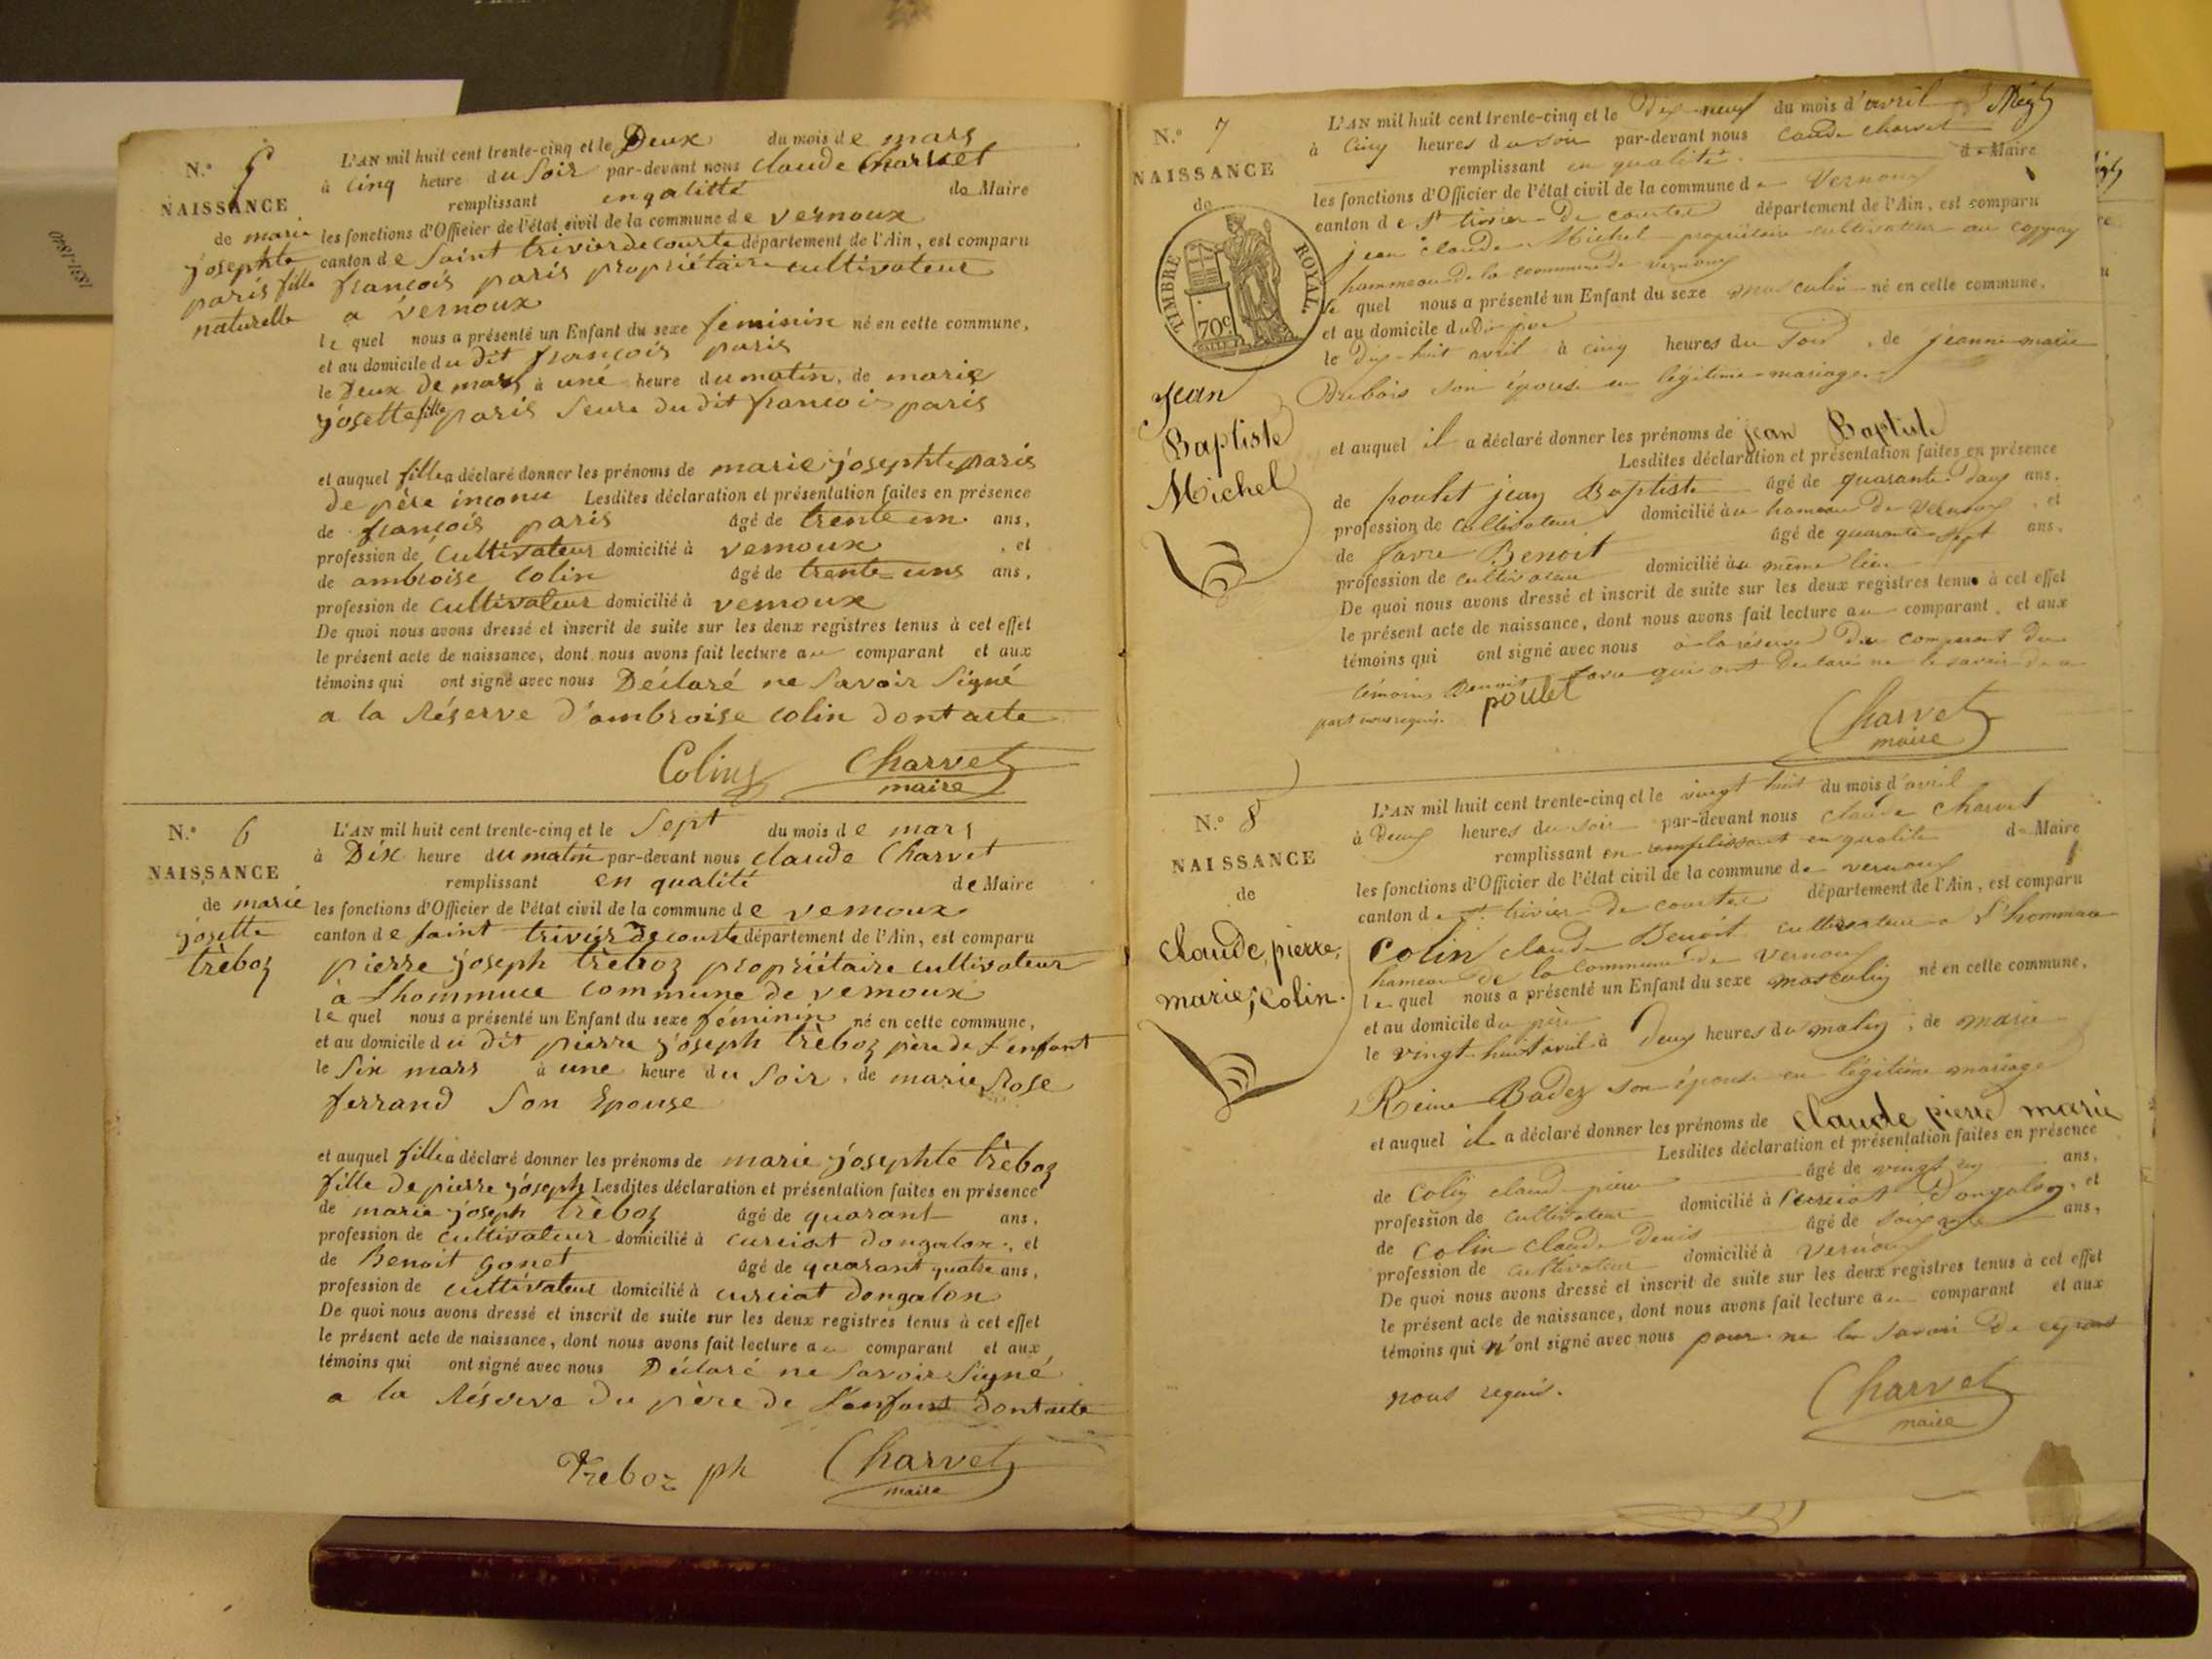 1831-1840
N.º 5
NAISSANCE
de marie
josephte
paris fille
naturelle
L'AN mil huit cent trente-cinq et le Deux du mois de mars
à cinq heure du soir par-devant nous claude Charvet
remplissant enqalitté de Maire
les fonctions d'Officier de l'état civil de la commune de vernoux
canton de saint trivier de courte département de l'Ain, est comparu
françois paris propriétaire cultivateur
a vernoux
lequel nous a présenté un Enfant du sexe feminin né en cette commune,
et au domicile du dit françois paris
le Deux de mars à une heure du matin, de marie
josette fille paris seure du dit françois paris
et auquel fille a déclaré donner les prénoms de marie josephte paris
de père inconu Lesdites déclaration et présentation faites en présence
de françois paris âgé de trente un ans,
profession de cultivateur domicilié à vernoux , et
de ambroise colin âgé de trente uns ans,
profession de cultivateur domicilié à vernoux
De quoi nous avons dressé et inscrit de suite sur les deux registres tenus à cet effet
le présent acte de naissance, dont nous avons fait lecture au comparant et aux
témoins qui ont signé avec nous Déclaré ne savoir signé
a la Réserve d'ambroise colin dont acte
Colin Charvet
maire
N.º 6
NAISSANCE
de marie
josette
trèboz
L'AN mil huit cent trente-cinq et le Sept du mois de mars
à Dix heure du matin par-devant nous claude Charvet
remplissant en qualité de Maire
les fonctions d'Officier de l'état civil de la commune de vernoux
canton de saint trivier de courte département de l'Ain, est comparu
pierre joseph trèboz propriétaire cultivateur
à commune de vernoux
lequel nous a présenté un Enfant du sexe féminin né en cette commune,
et au domicile du dit pierre joseph trèboz père de l'enfant
le six mars à une heure du soir, de marie Rose
ferrand son Epouse
et auquel fille a déclaré donner les prénoms de marie josephte trèboz
fille de pierre joseph Lesdites déclaration et présentation faites en présence
de marie joseph trèboz âgé de quarant ans,
profession de cultivateur domicilié à curciat dongalon, et
de Benoit gonet âgé de quarant quatre ans,
profession de cultivateur domicilié à curciat dongalon
De quoi nous avons dressé et inscrit de suite sur les deux registres tenus à cet effet
le présent acte de naissance, dont nous avons fait lecture au comparant et aux
témoins qui ont signé avec nous Déclaré ne savoir signé
a la Réserve du père de l'enfant dont acte
Treboz ph Charvet
maire
N.º 7
NAISSANCE
de
TIMBRE ROYAL.
70c
Jean
Baptiste
Michel
L'AN mil huit cent trente-cinq et le Dix-neuf du mois d'avril
à cinq heures du soir par-devant nous claude charvet
remplissant en qualité de Maire
les fonctions d'Officier de l'état civil de la commune de Vernoux
canton de St trivier De courtes département de l'Ain, est comparu
jean claude Michel propriétaire cultivateur au
hammeau de la commune de vernoux
lequel nous a présenté un Enfant du sexe masculin né en cette commune,
et au domicile du Dit père
le Dix-huit avril à cinq heures du soir, de jeanne marie
Dubois son épouse en légitime mariage
et auquel il a déclaré donner les prénoms de jean Baptiste
Lesdites déclaration et présentation faites en présence
de poulet jean Baptiste âgé de quarante Deux ans,
profession de cultivateur domicilié au hameau De vernoux, et
de favre Benoit âgé de quarante sept ans,
profession de cultivateur domicilié au même lieu
De quoi nous avons dressé et inscrit de suite sur les deux registres tenus à cet effet
le présent acte de naissance, dont nous avons fait lecture au comparant, et aux
témoins qui ont signé avec nous à la réserve du comparant du
témoins Benoit favre qui ont déclaré ne le savoir de ce
part nous requis. poulet
Charvet
maire
N.º 8
NAISSANCE
de
claude, pierre,
marie, colin.
L'AN mil huit cent trente-cinq et le vingt huit du mois d'avril
à Deux heures du soir par-devant nous claude charvet
remplissant en remplissant en qualité de Maire
les fonctions d'Officier de l'état civil de la commune de vernoux
canton de St trivier De courtes département de l'Ain, est comparu
colin claude Benoit cultivateur a
hameau de la commune de vernoux
lequel nous a présenté un Enfant du sexe masculin né en cette commune,
et au domicile du père
le vingt huit avril à Deux heures du matin, de marie
Reine Badez son épouse en légitime mariage
et auquel il a déclaré donner les prénoms de claude pierre marie
Lesdites déclaration et présentation faites en présence
de colin claude pierre âgé de vingt ans,
profession de cultivateur domicilié à Curciat Dongalon, et
de colin claude Denis âgé de ans,
profession de cultivateur domicilié à vernoux
De quoi nous avons dressé et inscrit de suite sur les deux registres tenus à cet effet
le présent acte de naissance, dont nous avons fait lecture au comparant et aux
témoins qui n'ont signé avec nous pour ne le savoir De
nous requis.
Charvet
maire